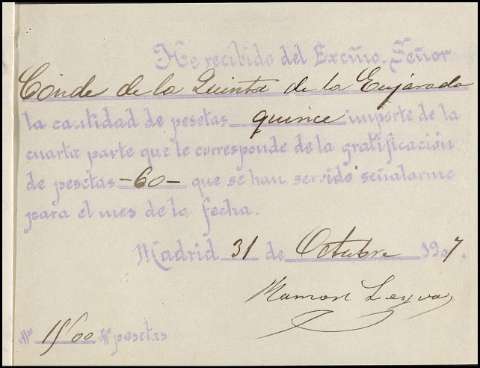 He recibido del Excmo. Señor
Conde de la Quinta de la Enjarada
la cantidad de pesetas quince importe de la
cuarta parte que le corresponde de la gratificación
de pesetas -60- que se han servido señalarme
para el mes de la fecha.
Madrid 31 de Octubre 1907.
Ramon Leyva
Son # 15'00 # pesetas